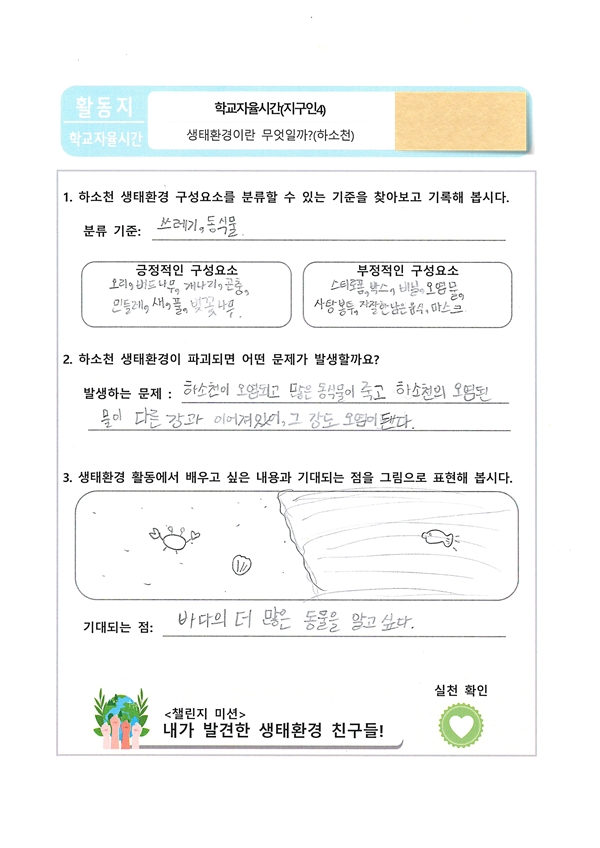 활동지
학교자율시간
학교자율시간(지구인4)
생태환경이란 무엇일까?(하소천)
1. 하소천 생태환경 구성요소를 분류할 수 있는 기준을 찾아보고 기록해 봅시다.
분류 기준: 쓰레기, 동식물.
긍정적인 구성요소
오리, 버드나무, 개나리, 곤충,
민들레, 새, 풀, 벚꽃나무.
부정적인 구성요소
스티로폼, 박스, 비닐, 오염물,
사탕봉투, 자잘한남은음식, 마스크
2. 하소천 생태환경이 파괴되면 어떤 문제가 발생할까요?
발생하는 문제 : 하소천이 오염되고 많은 동식물이 죽고 하소천의 오염된
물이 다른 강과 이어져있어, 그 강도 오염이 됀다.
3. 생태환경 활동에서 배우고 싶은 내용과 기대되는 점을 그림으로 표현해 봅시다.
기대되는 점: 바다의 더 많은 동물을 알고 싶다.
실천 확인
<챌린지 미션>
내가 발견한 생태환경 친구들!